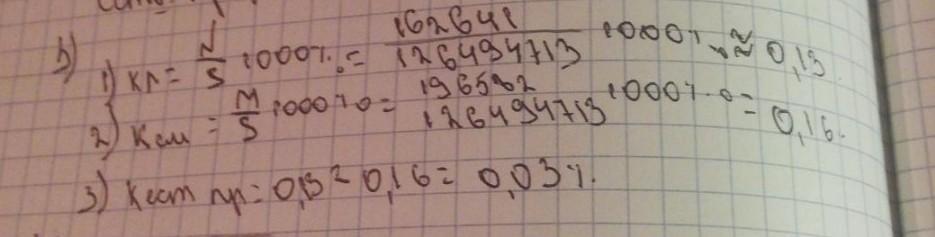 б)
1) Кр = N/S · 1000‰ = 162641/126494713 · 1000‰ ≈ 0,13
2) Ксм = M/S · 1000‰ = 196592/126494713 · 1000‰ = 0,16.
3) Кест пр = 0,13 - 0,16 = 0,03%.